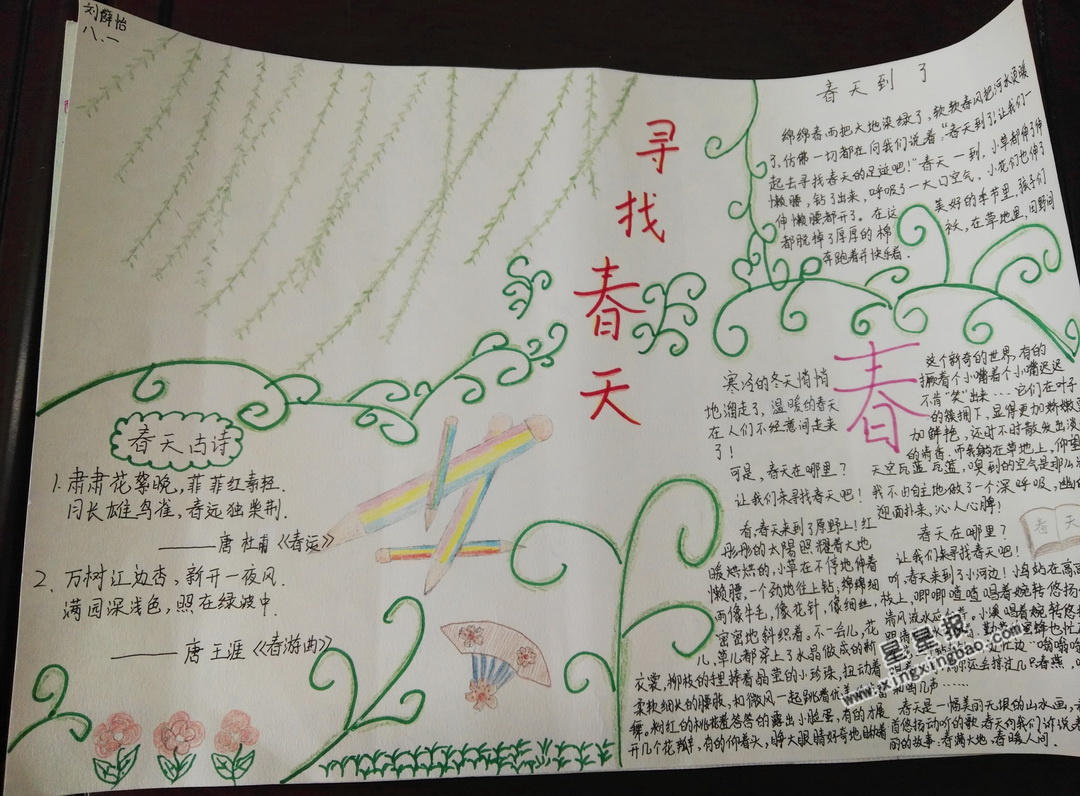 刘薛怡
八.一
寻
找
春
天
春天到了
绵绵春雨把大地染绿了，软软春风把河水烫暖
了，仿佛一切都在向我们说着："春天到了！让我们一
起去寻找春天的足迹吧！"春天一到，小草都伸了伸
懒腰，钻了出来，呼吸了一大口空气。小花们也伸了
伸懒腰都开了。在这美好的季节里，孩子们
都脱掉了厚厚的棉袄，在草地里，田野间
奔跑着开快乐着.
春天古诗
1.肃肃花絮晚，菲菲红素轻.
日长雄鸟雀，春远独柴荆.
——唐 杜甫《春运》
2. 万树江边杏，新开一夜风.
满园深浅色，照在绿波中.
——唐 王涯《春游曲》
春
寒冷的冬天悄悄
地溜走了，温暖的春天
在人们不经意间走来
了！
可是，春天在哪里？
让我们来寻找春天吧！
看，春天来到了原野上！红
彤彤的太阳照耀着大地
暖烘烘的，小草在不停地伸着
懒腰，一个劲地往上钻；绵绵细
雨像牛毛，像花针，像细丝，
密密地斜织着。不一会儿，花
儿，草儿都穿上了水晶做成的新
衣裳，柳枝的捏捧着晶莹的小珍珠，扭动着
柔软细长的腰肢，和微风一起跳着优美
舞。粉红的桃花羞答答的露出小脸蛋，有的才展
开几个花瓣，有的仰着头，睁大眼睛好奇地瞅着
这个新奇的世界，有的
撅着个小嘴着个小嘴迟迟
不肯"笑"出来…它们在叶子
的簇拥下，显得更加娇嫩
加鲜艳，还时不时散发出淡
的清香，而我躺在草地上，仰望
天空瓦蓝瓦蓝，嗅到的空气是那么
我不由自主地做了一个深呼吸，幽
迎面扑来，沁人心脾！
春天在哪里？
让我们来寻找春天吧！
听，春天来到了小河边！小鸟站在高高
枝上，唧唧喳喳唱着婉转悠扬
清风流水应和着。小溪唱着婉转悠
春天是一幅美丽无垠的山水画，
首悠扬动听的歌，春天向我们诉说
丽的故事：春满大地，春暖人间.
春 天
星星报
www.jxingxingbao.com